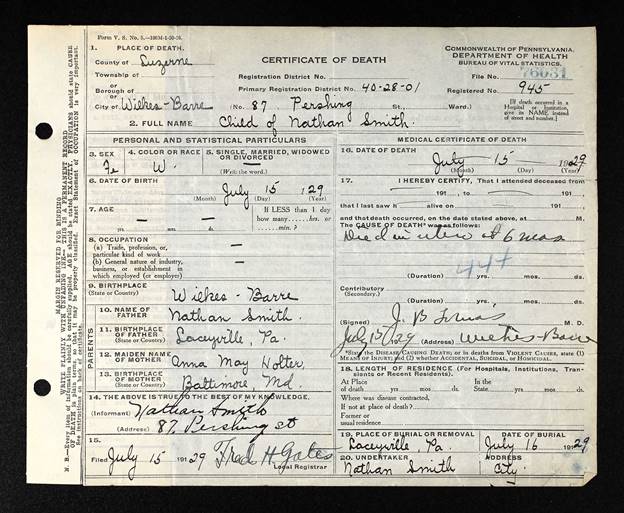 Form V. S. No. 5.
COMMONWEALTH OF PENNSYLVANIA
DEPARTMENT OF HEALTH
BUREAU OF VITAL STATISTICS.
CERTIFICATE OF DEATH
1. PLACE OF DEATH.
County of Luzerne
Township of
or
Borough of
or
City of Wilkes-Barre
Registration District No.
Primary Registration District No. 40-28-01
No. 87 Pershing St., Ward.)
File No. 76031
Registered No. 945
[If death occurred in a Hospital or Institution, give its NAME instead of street and number.]
2. FULL NAME Child of Nathan Smith.
PERSONAL AND STATISTICAL PARTICULARS
3. SEX Fe
4. COLOR OR RACE W.
5. SINGLE, MARRIED, WIDOWED or DIVORCED —
(Write the word.)
6. DATE OF BIRTH
July 15 129
(Month) (Day) (Year)
7. AGE — — —
If LESS than 1 day
how many....hrs. or
....min.?
8. OCCUPATION
(a) Trade, profession, or particular kind of work —
(b) General nature of industry, business, or establishment in which employed (or employer) —
9. BIRTHPLACE
(State or Country) Wilkes-Barre
PARENTS
10. NAME OF FATHER Nathan Smith.
11. BIRTHPLACE OF FATHER
(State or Country) Laceyville, Pa.
12. MAIDEN NAME OF MOTHER Anna May Wolter.
13. BIRTHPLACE OF MOTHER
(State or Country) Baltimore, Md
14. THE ABOVE IS TRUE TO THE BEST OF MY KNOWLEDGE.
(Informant) Nathan Smith
(Address) 87 Pershing st
15.
Filed July 15 19129 Fred H. Gates
Local Registrar
MEDICAL CERTIFICATE OF DEATH
16. DATE OF DEATH
July 15 1929
(Month) (Day) (Year)
17. I HEREBY CERTIFY, That I attended deceased from
191 , to 191
that I last saw h alive on 191
and that death occurred, on the date stated above, at M.
The CAUSE OF DEATH* was as follows:
Died in utero at 6 mos
(Duration) yrs. mos. ds.
Contributory
(Secondary)
(Duration) yrs. mos. ds.
(Signed) J. B M. D.
July 15/29 (Address) Wilkes-Barre
*State the DISEASE CAUSING DEATH; or in deaths from VIOLENT CAUSES, state (1) MEANS OF INJURY; and (2) whether ACCIDENTAL, SUICIDAL, or HOMICIDAL.
18. LENGTH OF RESIDENCE (For Hospitals, Institutions, Transients or Recent Residents).
At Place of death yrs. mos. ds. In the State yrs. mos. ds.
Where was disease contracted,
if not at place of death?
Former or
usual residence
19. PLACE OF BURIAL OR REMOVAL Laceyville, Pa.
DATE OF BURIAL July 16 1929
20. UNDERTAKER Nathan Smith
ADDRESS City.
MARGIN RESERVED FOR BINDING
WRITE PLAINLY WITH UNFADING INK— THIS IS A PERMANENT RECORD